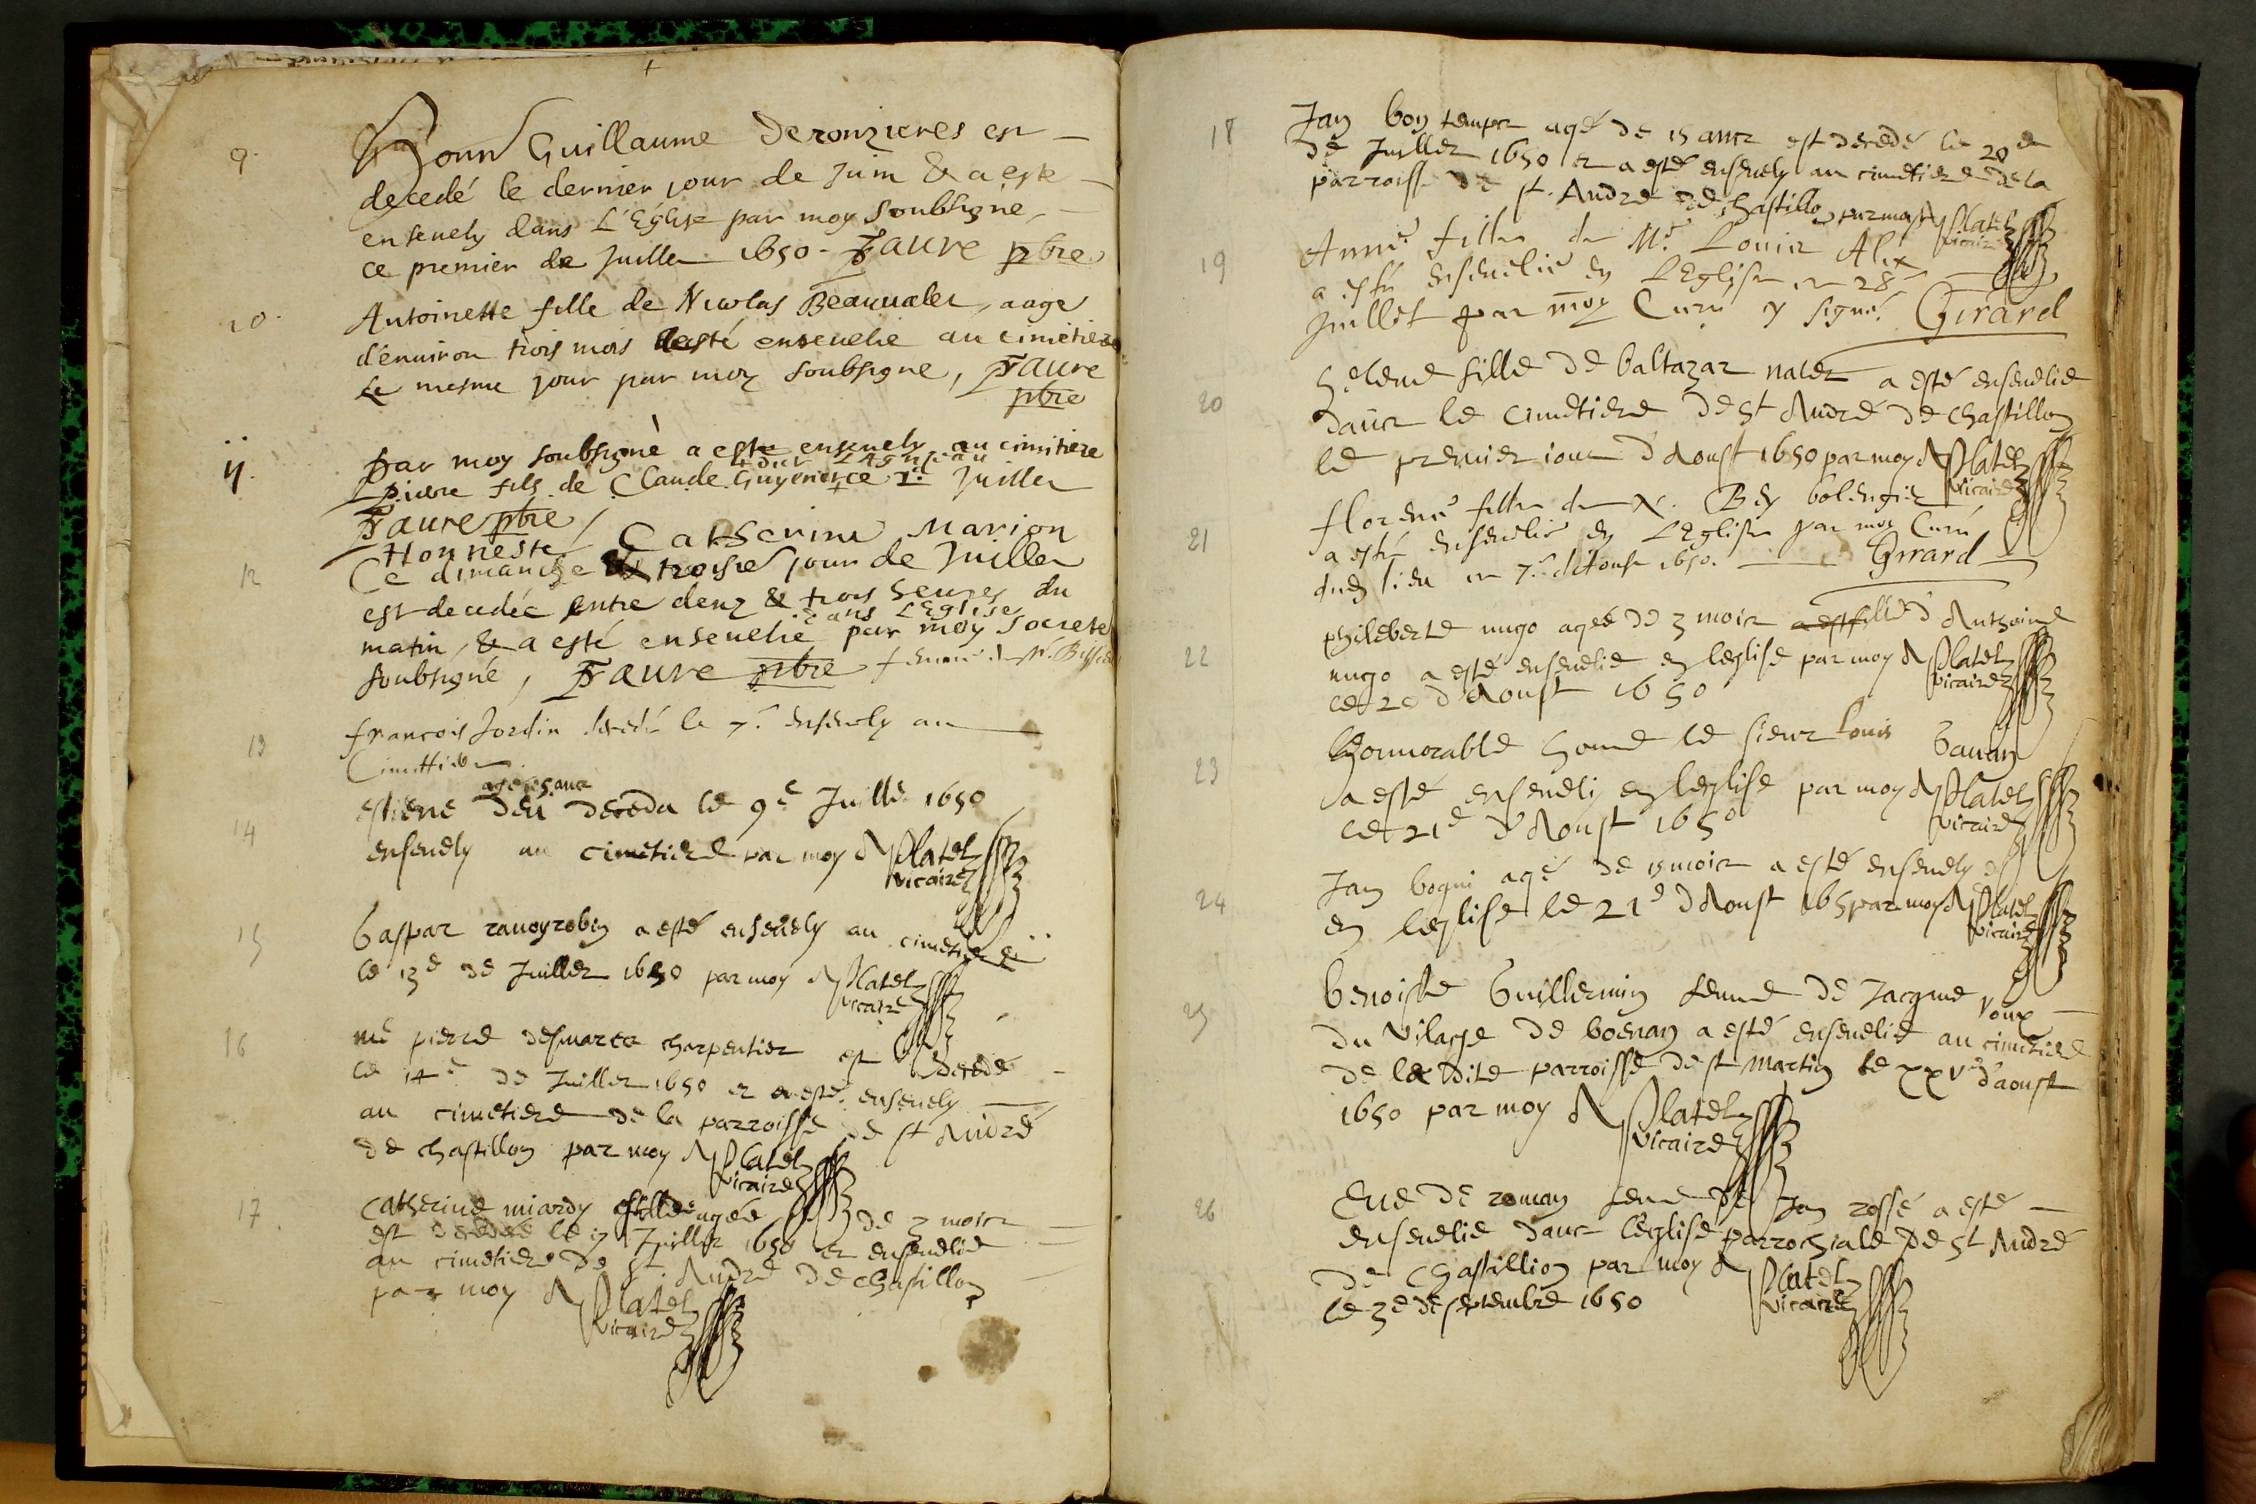 9. Honn Guillaume Deronzieres est
decedé le dernier jour de Juin & a este
ensevely dans L'Eglise par moy soubsigné,
ce premier de Juillet 1650 - Faure pbre
10. Antoinette fille de Nicolas Beauvalet, aage
d'environ trois mois a esté ensevelie au cimetiere
le mesme jour par moy soubsigne, Faure
pbre
11. par moy soubsignè a este ensevely au cimitiere
pierre fils de Claude Guyenier ce 1er Juillet
Faure pbre
Honneste Catherine Marion
12 Ce dimanche troisie jour de Juillet
est decedée entre deux & trois heures du
matin, & a esté ensevelie dans L'Eglise par moy Socretè
soubsigné, Faure pbre femme de Mr.
13 francois Jordin decedé le 7e ensevely au
Cimettiere
14 estiene deceda le 9e Juillet 1650
ensevely au cimetiere par moy Platet
vicaire
15 Gaspar ravoyrobin a esté ensevely au cimetiere
le 13e de Juillet 1650 par moy Platet
vicaire
16 me pierre desmarés charpentier est decedé
le 14e de Juillet 1650 et a esté ensevely
au cimetiere de la parroisse de st André
de chastillon par moy Platet
vicaire
17. Catherine miardy agee de 3 mois
est decedée le Juillet 1650 et ensevelie
au cimetiere de st André de chastillon
par moy Platet
vicaire
18 Jan bon temps agé de 15 ans est decedé le 20e
de Juillet 1650 et a esté ensevely au cimetiere de la
parroisse de st. André de chastillon par moy Platet
vicaire
19 Anne fille de Me Louis Alix
a esté ensevelie en L'Eglise ce 28
Juillet par moy Curé signé. Girard
20 helene fille de baltazar nalet a esté ensevelie
dans le cimetiere de st André de chastillon
le premier iour d'Aoust 1650 par moy Platet
vicaire
21 florence fille de N. Bey bolengier
a esté ensevelie en L'Eglise par moy Curé
dud lieu ce 7e d'Aoust 1650. Girard
22 philiberte nugo agee de 3 mois fille d'Anthoine
nugo a esté ensevelie en leglise par moy Platet
vicaire
le 20 d'Aoust 1650
23 honnorable home le sieur Louis
a esté ensevely en leglise par moy Platet
vicaire
le 21e d'Aoust 1650
24 Jan bogni agé de 15 mois a esté ensevely
en leglise le 21e d'Aoust 165 par moy Platet
vicaire
25 benoiste Guillermin femme de Jacque Voux
du vilage de boenan a esté ensevelie au cimetiere
de la dite parroisse de st Martin le xxve d'aoust
1650 par moy Platet
vicaire
26 Eve de roman feme de Jan rossé a esté
ensevelie dans leglise parrochiale de st André
de Chastillion par moy Platet
vicaire
le 3e de septembre 1650